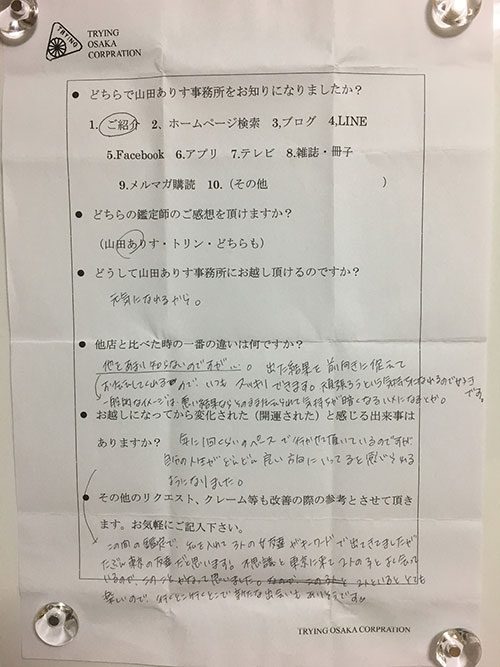 TRYING
TRYING
OSAKA
CORPRATION
● どちらで山田ありす事務所をお知りになりましたか？
1. ご紹介 2、ホームページ検索 3,ブログ 4,LINE
5.Facebook 6.アプリ 7.テレビ 8.雑誌・冊子
9.メルマガ購読 10.（その他 ）
● どちらの鑑定師のご感想を頂けますか？
（山田ありす・トリン・どちらも）
● どうして山田ありす事務所にお越し頂けるのですか？
元気になれるから。
● 他店と比べた時の一番の違いは何ですか？
他をあまり知らないのですが…。出た結果を前向きに捉えて
お伝えしてくれるので、いつもスッキリできます。頑張ろうという気持ちになれるので好き
です。
一般的なイメージは、悪い結果ならそのまま伝えられて気持ちが暗くなるイメージなどが。
● お越しになってから変化された（開運された）と感じる出来事は
ありますか？ 年に1回くらいのペースで行かせて頂いているのですが
自分の人生がどんどん良い方向にいってると感じられる
ようになりました。
● その他のリクエスト、クレーム等も改善の際の参考とさせて頂き
ます。お気軽にご記入下さい。
この間の鑑定で、私を入れて3人の女友達がキーワードで出てきてましたが
たぶん東京の友達だと思います。不思議と東京に来て
いるので、このことかなって思いました。 とても
楽しいので、行くとこ行くとこで新たな出会いもありそうです。
TRYING OSAKA CORPRATION